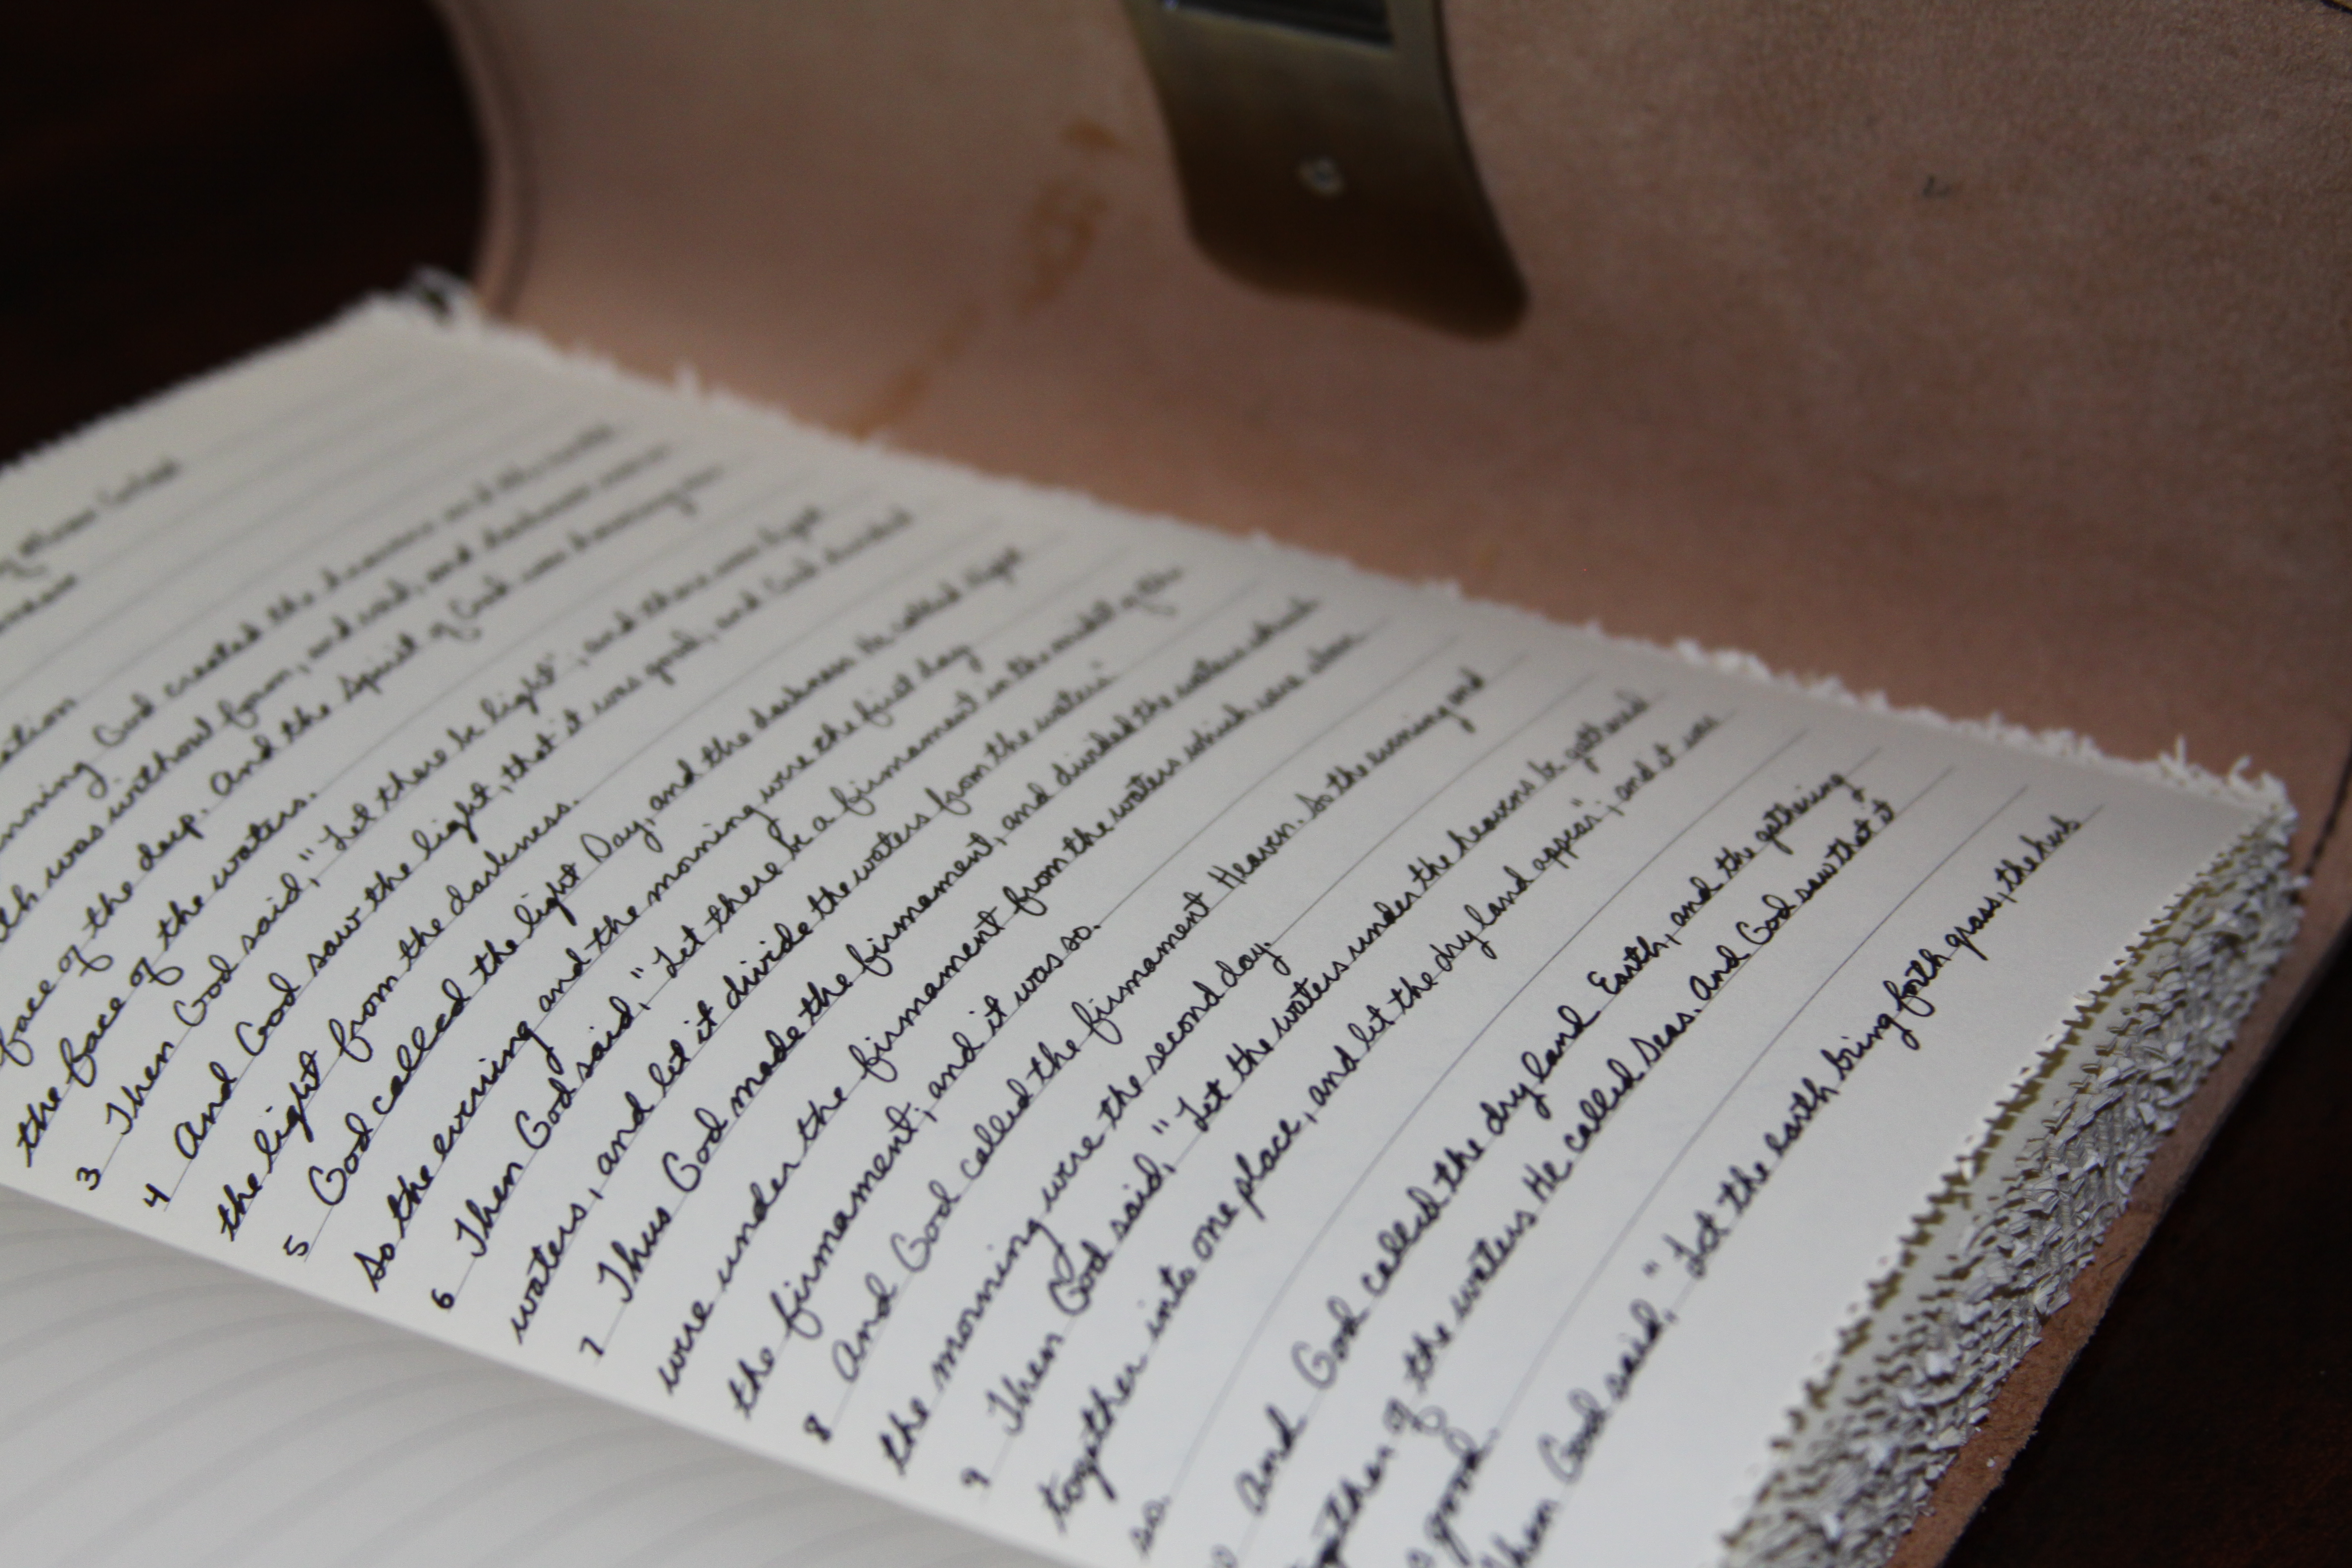 of Moses Called
ation
nning God created the heavens and the earth.
th was without form, and void, and darkness was on
face of the deep. And the Spirit of God was hovering over
the face of the waters.
3 Then God said, "Let there be light"; and there was light
4 And God saw the light, that it was good, and God divided
the light from the darkness.
5 God called the light Day, and the darkness he called Night
So the evening and the morning were the first day
6 Then God said, "Let there be a firmament in the midst of the
waters, and let it divide the waters from the waters.
7 Thus God made the firmament, and divided the waters which
were under the firmament from the waters which were above
the firmament; and it was so.
8 And God called the firmament Heaven. So the evening and
the morning were the second day.
9 Then God said, "Let the waters under the heavens be gathered
together into one place, and let the dry land appear"; and it was
so.
And God called the dry land Earth, and the gathering
together of the waters He called Seas. And God saw that it
good.
Then God said, "Let the earth bring forth grass, the herb